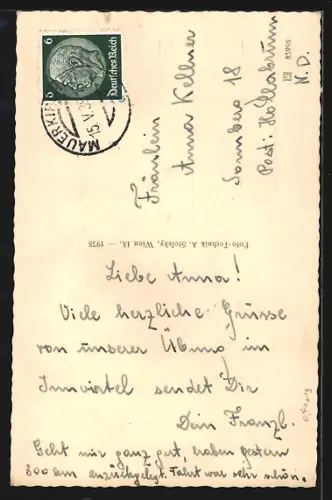 6 Deutsches Reich 6
MAUERKIR
15.V.39
B II 85998
Fräulein
Anna Kellner
Sonnberg 18
Post: Hollabrunn
N.D.
Foto-Technik A. Stefsky, Wien IX. — 1938
Liebe Anna!
Viele herzliche Grüsse
von unserer Übung im
Innviertel sendet Dir
Dein Franzl.
Geht mir ganz gut, haben gestern
300 km zurückgelegt. Fahrt war sehr schön.